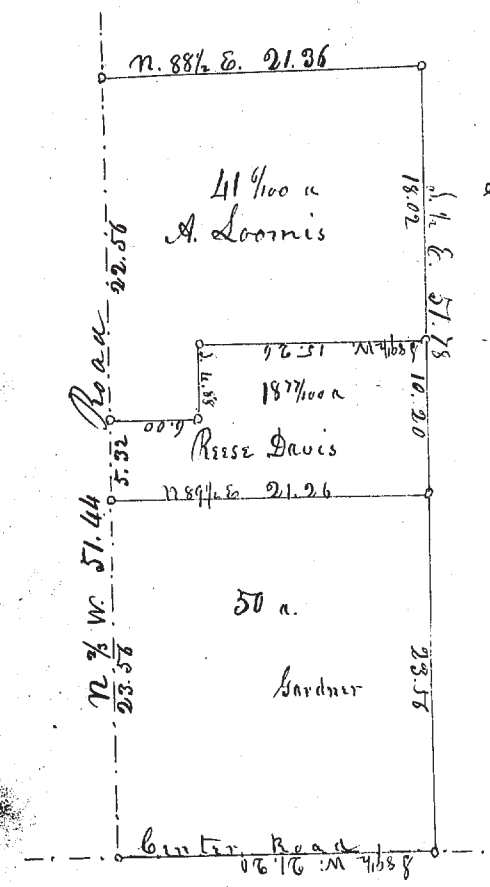 N. 88½ E. 21.36
41 6/100 a
A. Loomis
18.02
S. ½ E. 51.78
22.56
Road
S 89½ W. 15.26
4.88
18 77/100 a
10.20
6.00
Reese Davis
5.32
N 89½ E 21.26
N ⅔ W. 51.44
23.56
50 a.
Gardner
23.56
Center Road
S 89½ W. 21.20